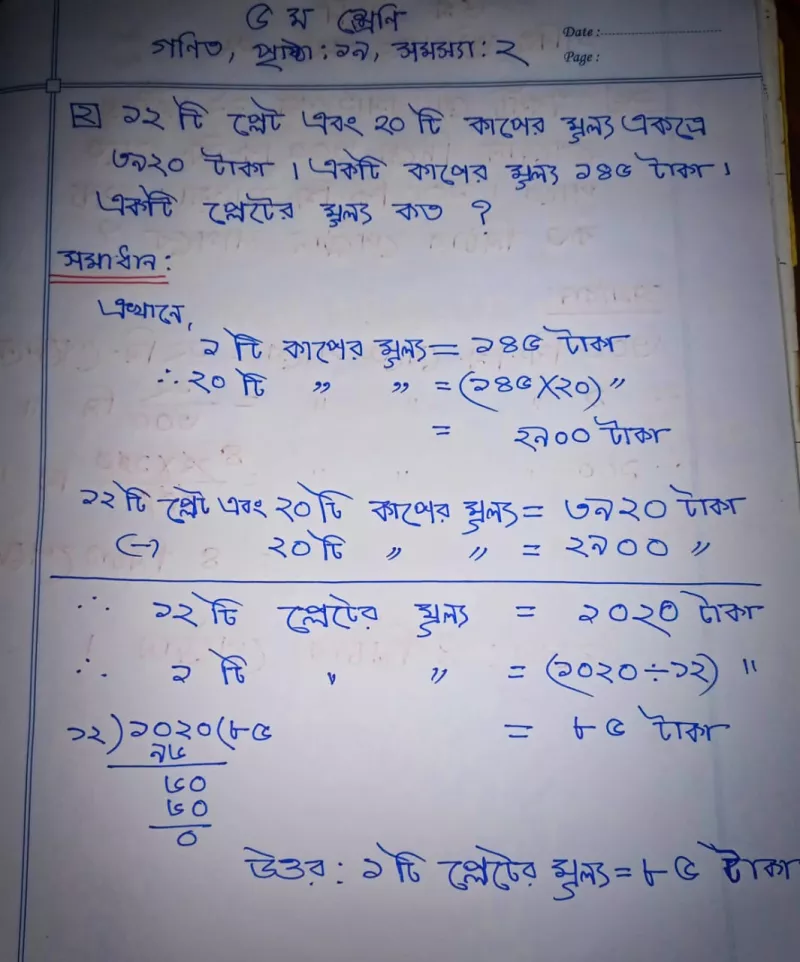 ৫ ম শ্রেনি
গনিত, পৃষ্ঠা: ১৯, সমস্যা: ২
Date :
Page :
২ ১২ টি প্লেট এবং ২০ টি কাপের মুল্য একত্রে
৩৯২০ টাকা । একটি কাপের মুল্য ১৪৫ টাকা ।
একটি প্লেটের মুল্য কত ?
সমাধান:
এখানে,
১ টি কাপের মুল্য = ১৪৫ টাকা
∴ ২০ টি " " = (১৪৫×২০) "
= ২৯০০ টাকা
১২টি প্লেট এবং ২০টি কাপের মুল্য = ৩৯২০ টাকা
(-) ২০টি " " = ২৯০০ "
∴ ১২ টি প্লেটের মুল্য = ১০২০ টাকা
∴ ১ টি " " = (১০২০÷১২) "
১২) ১০২০ (৮৫ = ৮৫ টাকা
৯৬
৬০
৬০
০
উত্তর: ১টি প্লেটের মুল্য = ৮৫ টাকা